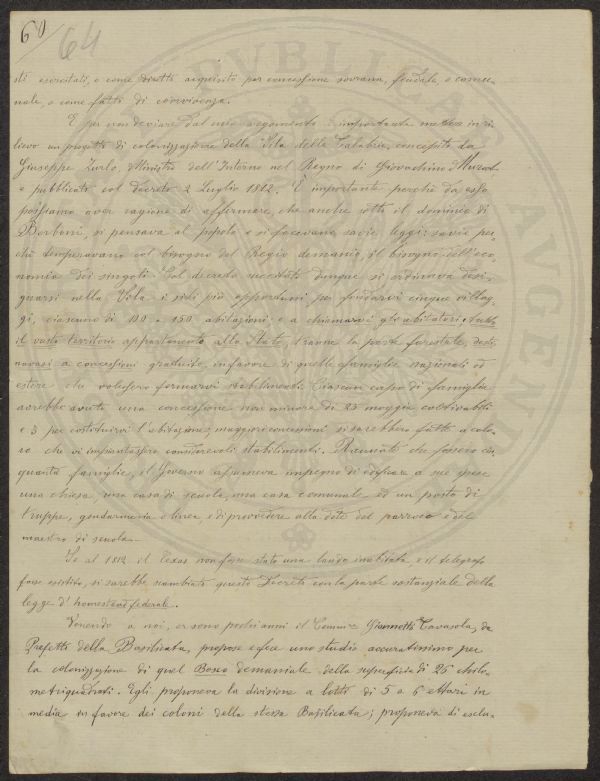 60
64
PVBLICAE AVGENDAE
sti esercitati, o come diritti acquisiti per concessione sovrana, feudale, o comu-
nale, o come fatti di convivenza.
E per non deviare dal mio argomento è importante mettere in ri-
lievo un progetto di colonizzazione della Sila della Calabria, concepito da
Giuseppe Zurlo, Ministro dell'Interno nel Regno di Giovachino Murat
e pubblicato col decreto 2 Luglio 1812. È importante perchè da esso
possiamo aver ragione di affermare, che anche sotto il dominio di
Borboni, si pensava al popolo e si facevano savie leggi: savie per-
chè temperavano col bisogno del Regio demanio, il bisogno dell'eco-
nomia dei singoli. Col decreto succitato dunque si ordinava desi-
gnarsi nella Sila i siti più opportuni per fondarvi cinque villag-
gi, ciascuno di 100 a 150 abitazioni e a chiamarvi gli abitatori. Tutto
il vasto territorio appartenente allo Stato, tranne la parte forestale, desti-
navasi a concessioni gratuite, in favore di quelle famiglie nazionali ed
estere che volessero formarvi stabilimenti. Ciascun capo di famiglia
avrebbe avuto una concessione non minore di 25 moggia coltivabili
e 3 per costituirvi l'abitazione; maggiori concessioni si sarebbero fatte a colo-
ro che vi impiantassero considerevoli stabilimenti. Radunate che fossero cin-
quanta famiglie, il Governo assumeva impegno di edificare a sue spese
una chiesa, una casa di scuola, una casa comunale ed un posto di
truppe, gendarmeria e di provvedere alla dote del parroco e del
maestro di scuola.
Se al 1812 il Texas non fosse stato una landa inabitata, e il telegrafo
fosse esistito, si sarebbe scambiato questo Decreto con la parte sostanziale della
legge d'homestead federale.
Venendo a noi, or sono pochi anni il Comm.re Giannetti Cavasola, da
Prefetto della Basilicata, propose e fece uno studio accuratissimo per
la colonizzazione di quel Bosco demaniale della superficie di 25 chilo-
metri quadrati. Egli proponeva la divisione a lotti di 5 a 6 ettari in
media in favore dei coloni della stessa Basilicata; proponeva di esclu-